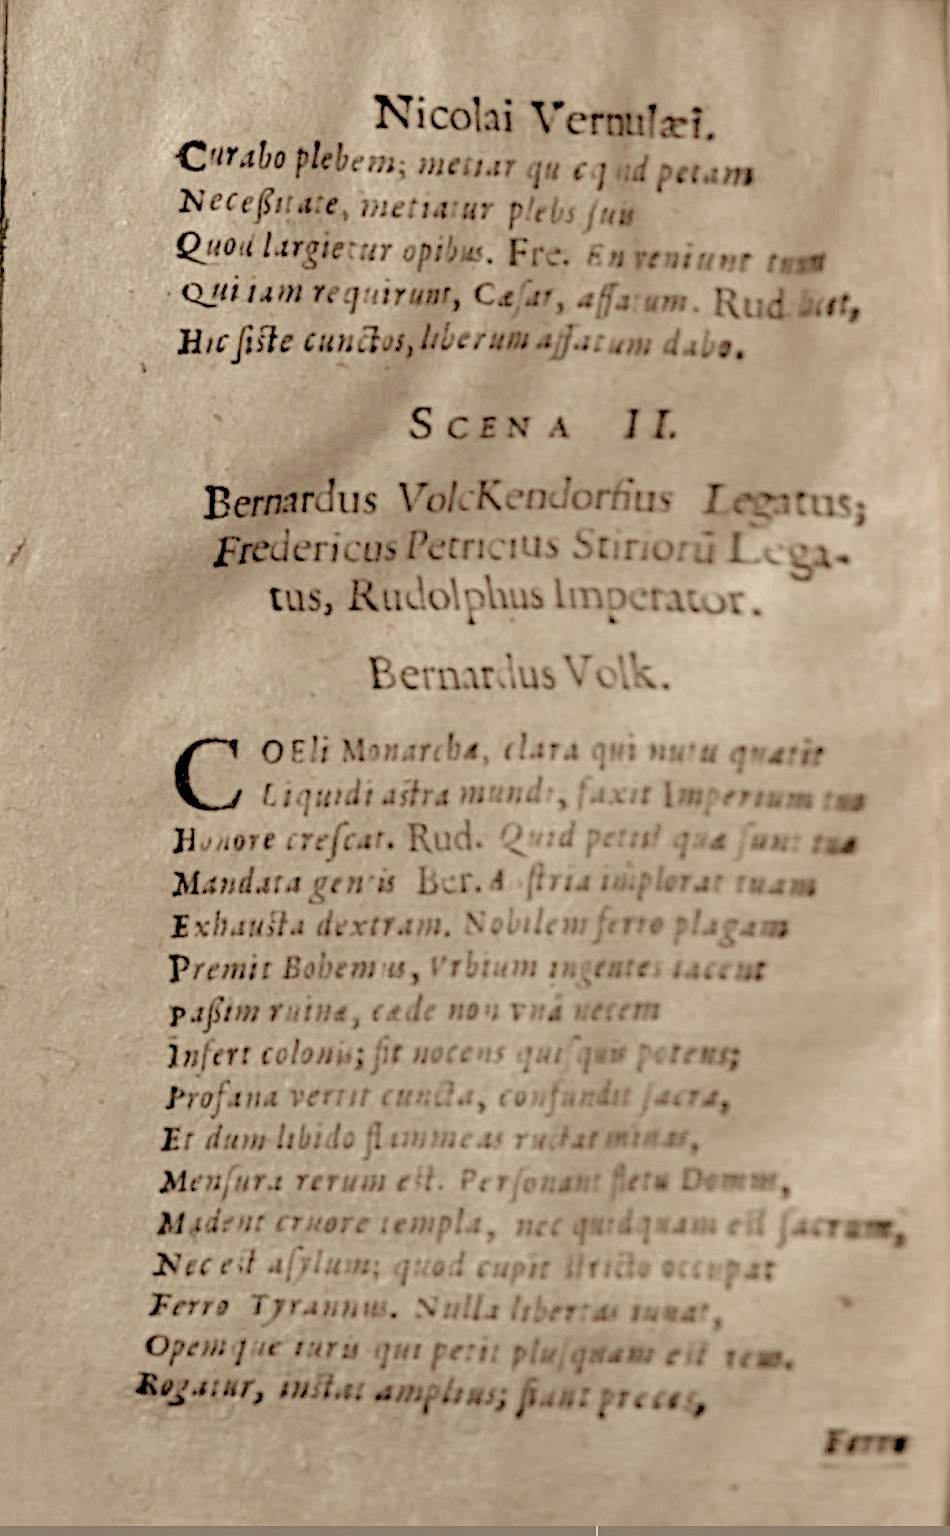 Nicolai Vernulæi.
Curabo plebem; metiar quicquid petam
Neceßitate, metiatur plebs suis
Quod largietur opibus. Fre. En veniunt tuum
Qui iam requirunt, Cæsar, affatum. Rud.
Hic siste cunctos, liberum affatum dabo.
SCENA II.
Bernardus VolcKendorfius Legatus;
Fredericus Petricius Stiriorū Lega-
tus, Rudolphus Imperator.
Bernardus Volk.
COEli Monarcha, clara qui nutu quatit
Liquidi astra mundi, faxit Imperium tuo
Honore crescat. Rud. Quid petis? quæ sunt tuæ
Mandata gentis Ber. Austria implorat tuam
Exhausta dextram. Nobilem ferro plagam
Premit Bohemus, Vrbium ingentes iacent
paßim ruinæ, cæde non vnâ necem
Infert colonis; fit nocens quisquis potens;
Profana vertit cuncta, confundit sacra,
Et dum libido flammeas ructat minas,
Mensura rerum est. Personant fletu Domus,
Madent cruore templa, nec quidquam est sacrum,
Nec est asylum; quod cupit stricto occupat
Ferro Tyrannus. Nulla libertas iuuat,
Opemque iuris qui petit plusquam est reus.
Rogatur, instat amplius; fiunt preces,
Ferro